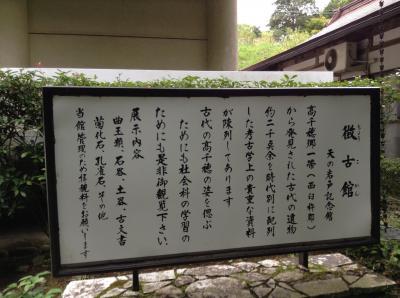 徴古館
ちょうこかん
天の岩戸記念館
高千穂郷一帯(西臼杵郡)
から発見された古代の遺物
約二千点余を時代別に配列
した考古学上の貴重な資料
が陳列してあります
古代の高千穂の姿を偲ぶ
ためにも社会科の学習の
ためにも是非御観覧下さい。
展示内容
曲玉類、石器、土器、古文書
菊花石、孔雀石、その他
当館管理のため拝観料をお願いします